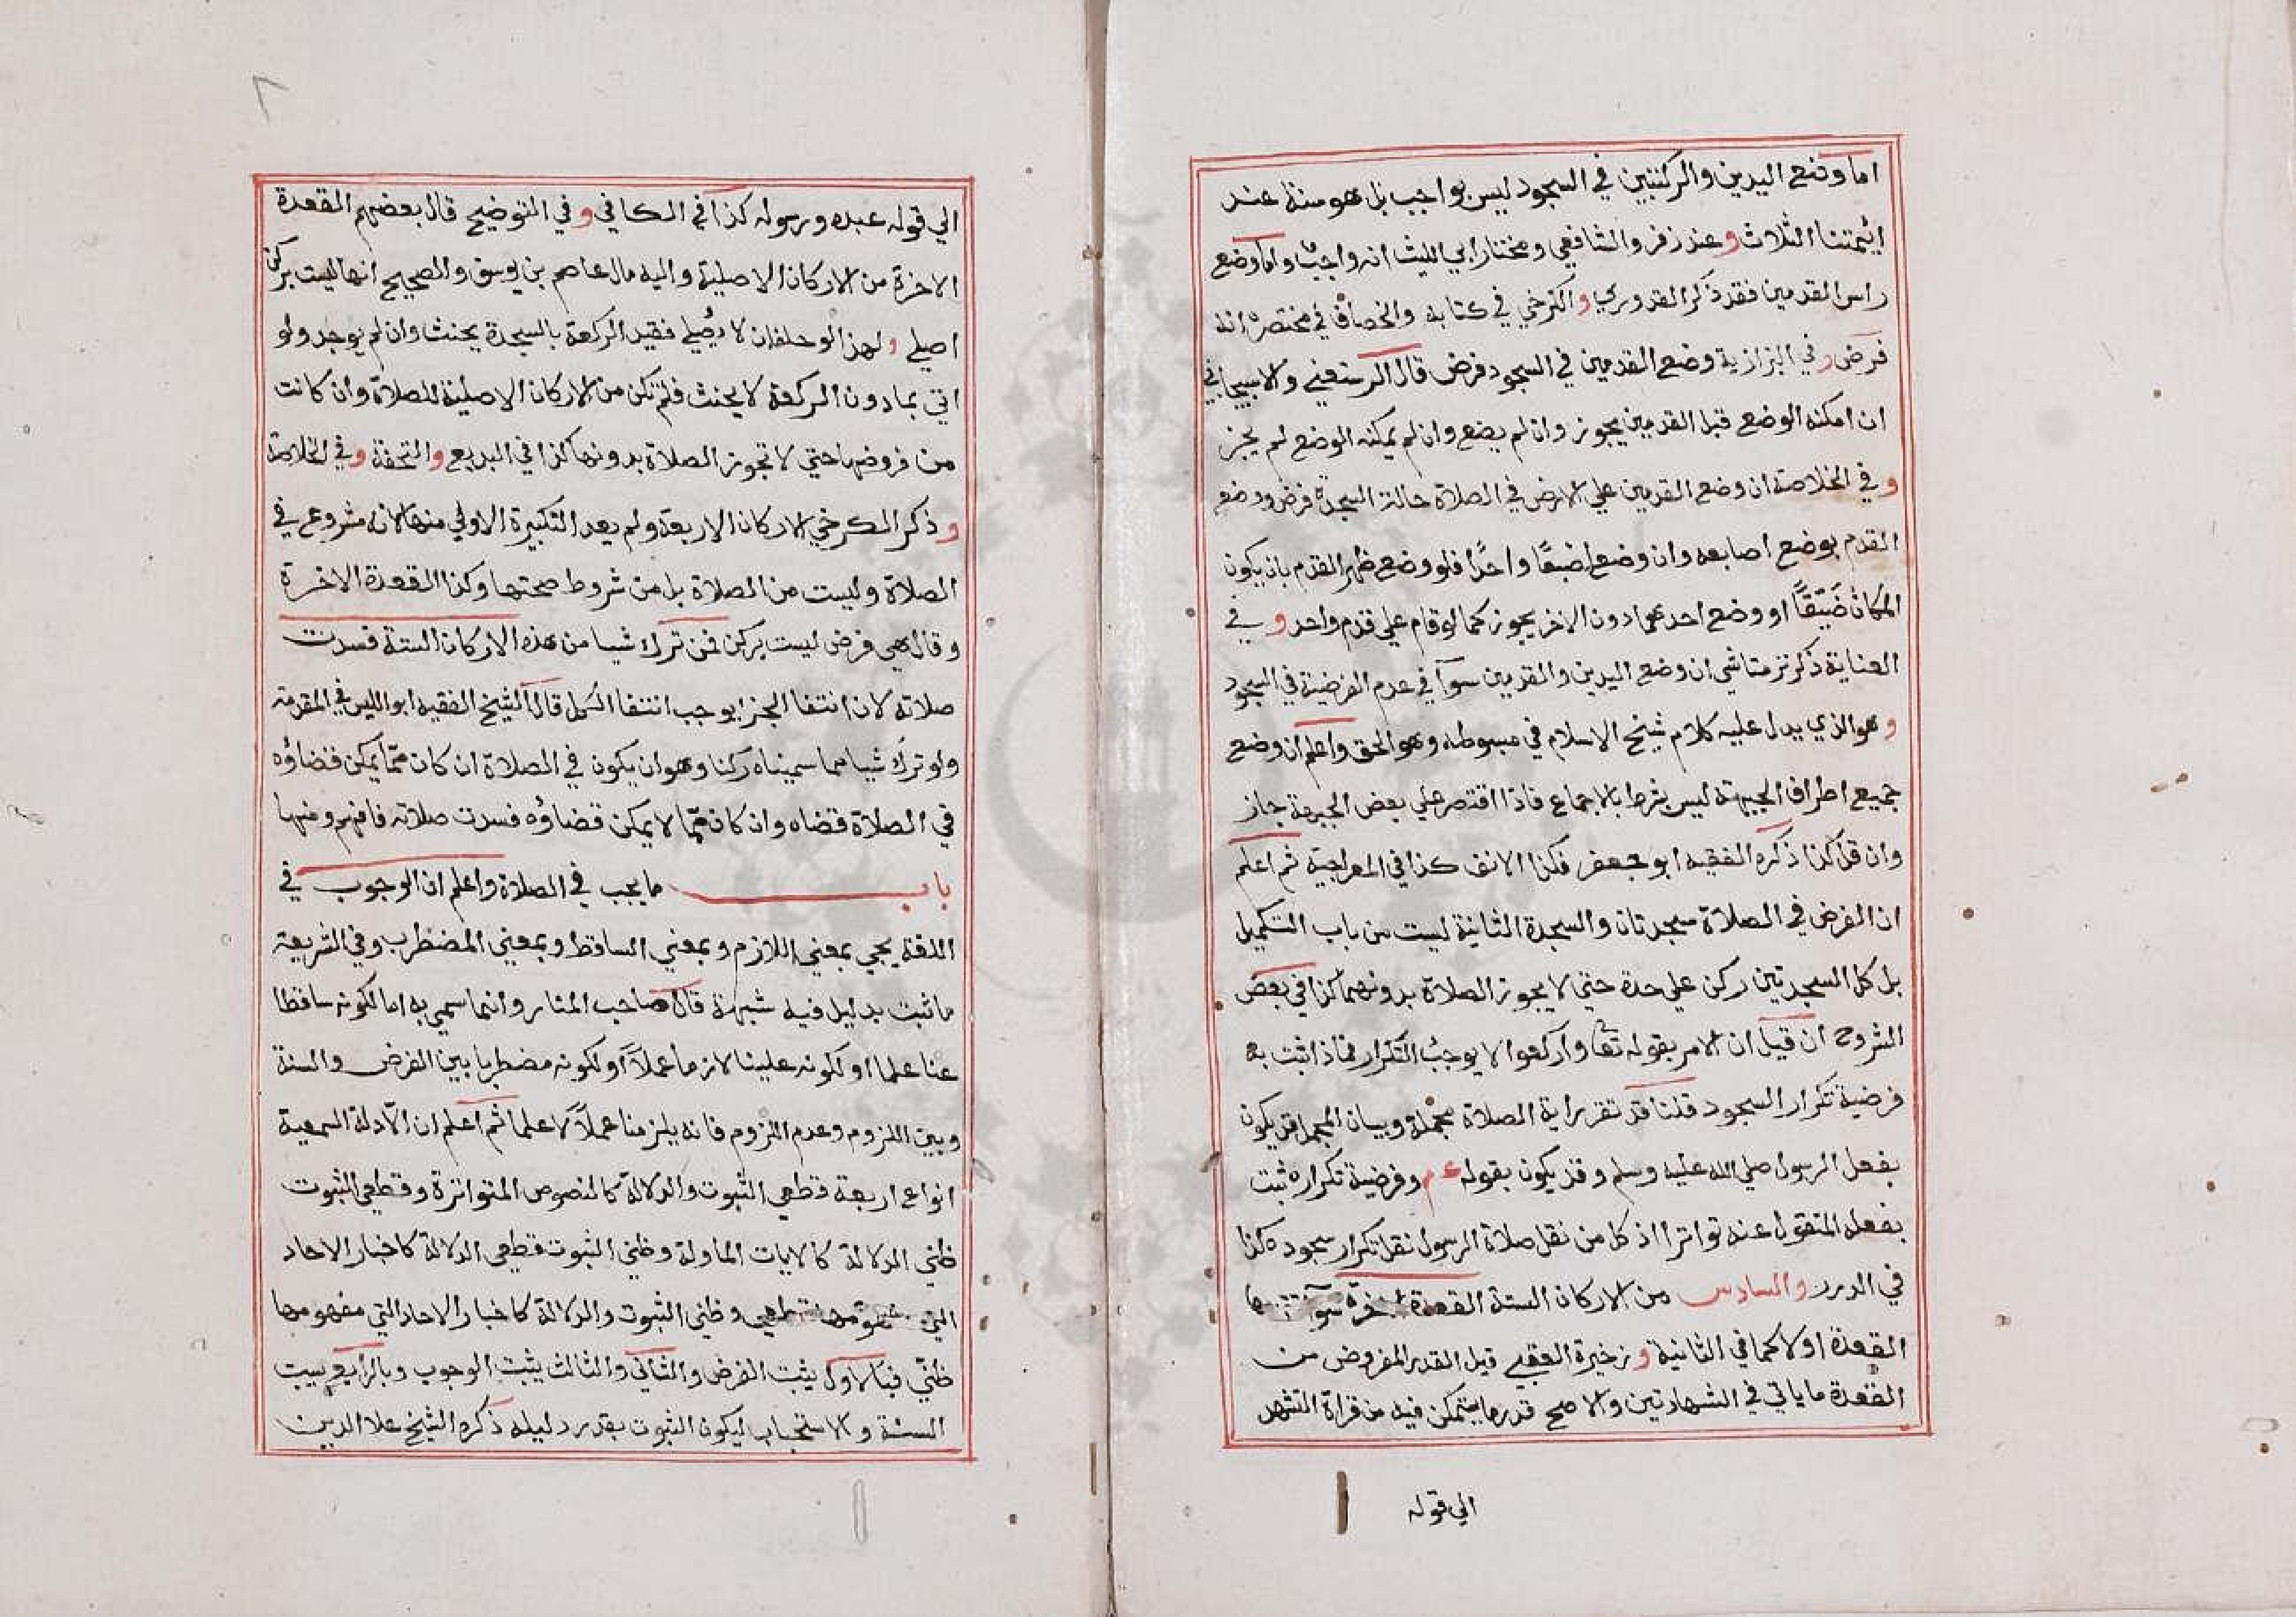 اما وضع اليدين والركبتين في السجود ليس بواجب بل هو سنة عند
ايمتنا الثلاث وعند زفر والشافعي ومختار ابي الليث انه واجب واما وضع
راس القدمين فقد ذكر القدوري والكرخي في كتابه والخصاف في مختصره انه
فرض وفي البزازية وضع القدمين في السجود فرض قال الرستغني والاسبيجابي
ان امكنه الوضع قبل القدمين يجوز وان لم يضع وان لم يمكنه الوضع لم يجز
وفي الخلاصة ان وضع القدمين علي الارض في الصلاة حالة السجدة فرض ووضع
القدم بوضع اصابعه وان وضع اضبعًا واحدًا فلو وضع ظهر القدم بان يكون
المكان ضَيّقًا او وضع احدهما دون الاخر يجوز كما لو قام علي قدم واحد و في
العناية ذكر تزمتاشي ان وضع اليدين والقدمين سوآ في عدم الفرضية في السجود
وهو الذي يدل عليه كلام شيخ الاسلام في مبسوطه وهو الحق واعلم ان وضع
جميع اطراف الجبهة ليس بشرط بالاجماع فاذا اقتصر علي بعض الجبهة جاز
وان قل كذا ذكره الفقيه ابو جعفر فكذا الانف كذا في المعراجية ثم اعلم
ان الفرض في الصلاة سجدتان والسجدة الثانية ليست من باب التكميل
بل كل السجدتين ركن علي حدة حتي لا يجوز الصلاة بدونهما كذا في بعض
الشروح ان قيل ان الامر بقوله تعا واركعوا لا يوجب التكرار فماذا اثبت به
فرضية تكرار السجود قلنا قد تقرر اية الصلاة مجملة وبيان المجمل قد يكون
بفعل الرسول صلي الله عليه وسلم وقد يكون بقوله عم وفرضية تكراره ثبت
بفعله المنقول عنه تواترا اذ كل من نقل صلاة الرسول نقل تكرار سجوده كذا
في الدرر والسادس من الاركان الستة القعدة
القعدة اولا كما في الثانية و زخيرة العقبي قيل القدر المفروض من
القعدة ما ياتي في الشهادتين والاصح قدر ما يتمكن فيه من قراة التشهد
الي قوله
الي قوله عبده ورسوله كذا في الكافي وفي التوضيح قال بعضهم القعدة
الاخرة من الاركان الاصلية واليه مال عاصم بن يوسف والصحيح انها ليست بركن
اصلي ولهذا لو حلف ان لا يُصلي فقيد الركعة بالسجدة يحنث وان لم يوجد ولو
اتي بما دون الركعة لا يحنث فلم تكن من الاركان الاصلية للصلاة وان كانت
من فروضها حتي لا تجوز الصلاة بدونها كذا في البديع والتحفة وفي الخلاصة
وذكر الكرخي الاركان الاربعة ولم يعد التكبيرة الاولي منها لانه مشروع في
الصلاة وليست من الصلاة بل من شروط صحتها وكذا القعدة الاخرة
وقال هي فرض ليست بركن فمن ترك شيا من هذه الاركان الستة فسدت
صلاته لان انتفا الجز يوجب انتفا الكل قال الشيخ الفقيه ابو الليس في المقدمة
ولو ترك شيا مما سميناه ركنا وهو ان يكون في الصلاة ان كان ممّا يمكن قضاؤه
في الصلاة قضاه وان كان ممّا لا يمكن قضاؤه فسدت صلاته فافهم ومنها
باب ما يجب في الصلاة واعلم ان الوجوب في
اللغة يجي بمعني اللازم وبمعني الساقط وبمعني المضطرب وفي الشريعة
ما ثبت بدليل فيه شبهة قال صاحب المنار وانما سمي به اما لكونه ساقطا
عنا علما او لكونه علينا لازما عملاً او لكونه مضطربا بين الفرض والسنة
وبين اللزوم وعدم اللزوم فانه يلزمنا عملاً لا علما ثم اعلم ان الادلة السمعية
انواع اربعة قطعي الثبوت والدلالة كالنصوص المتواترة وقطعي الثبوت
ظني الدلالة كالايات الماولة وظني الثبوت قطعي الدلالة كاخبار الاحاد
التي قطعي وظني الثبوت والدلالة كاخبار الاحاد التي مفهومها
ظنّي فبالاول يثبت الفرض والثاني والثالث يثبت الوجوب وبالرابع يبت
السنة والاستحباب ليكون الثبوت بقدر دليله ذكره الشيخ علا الدين